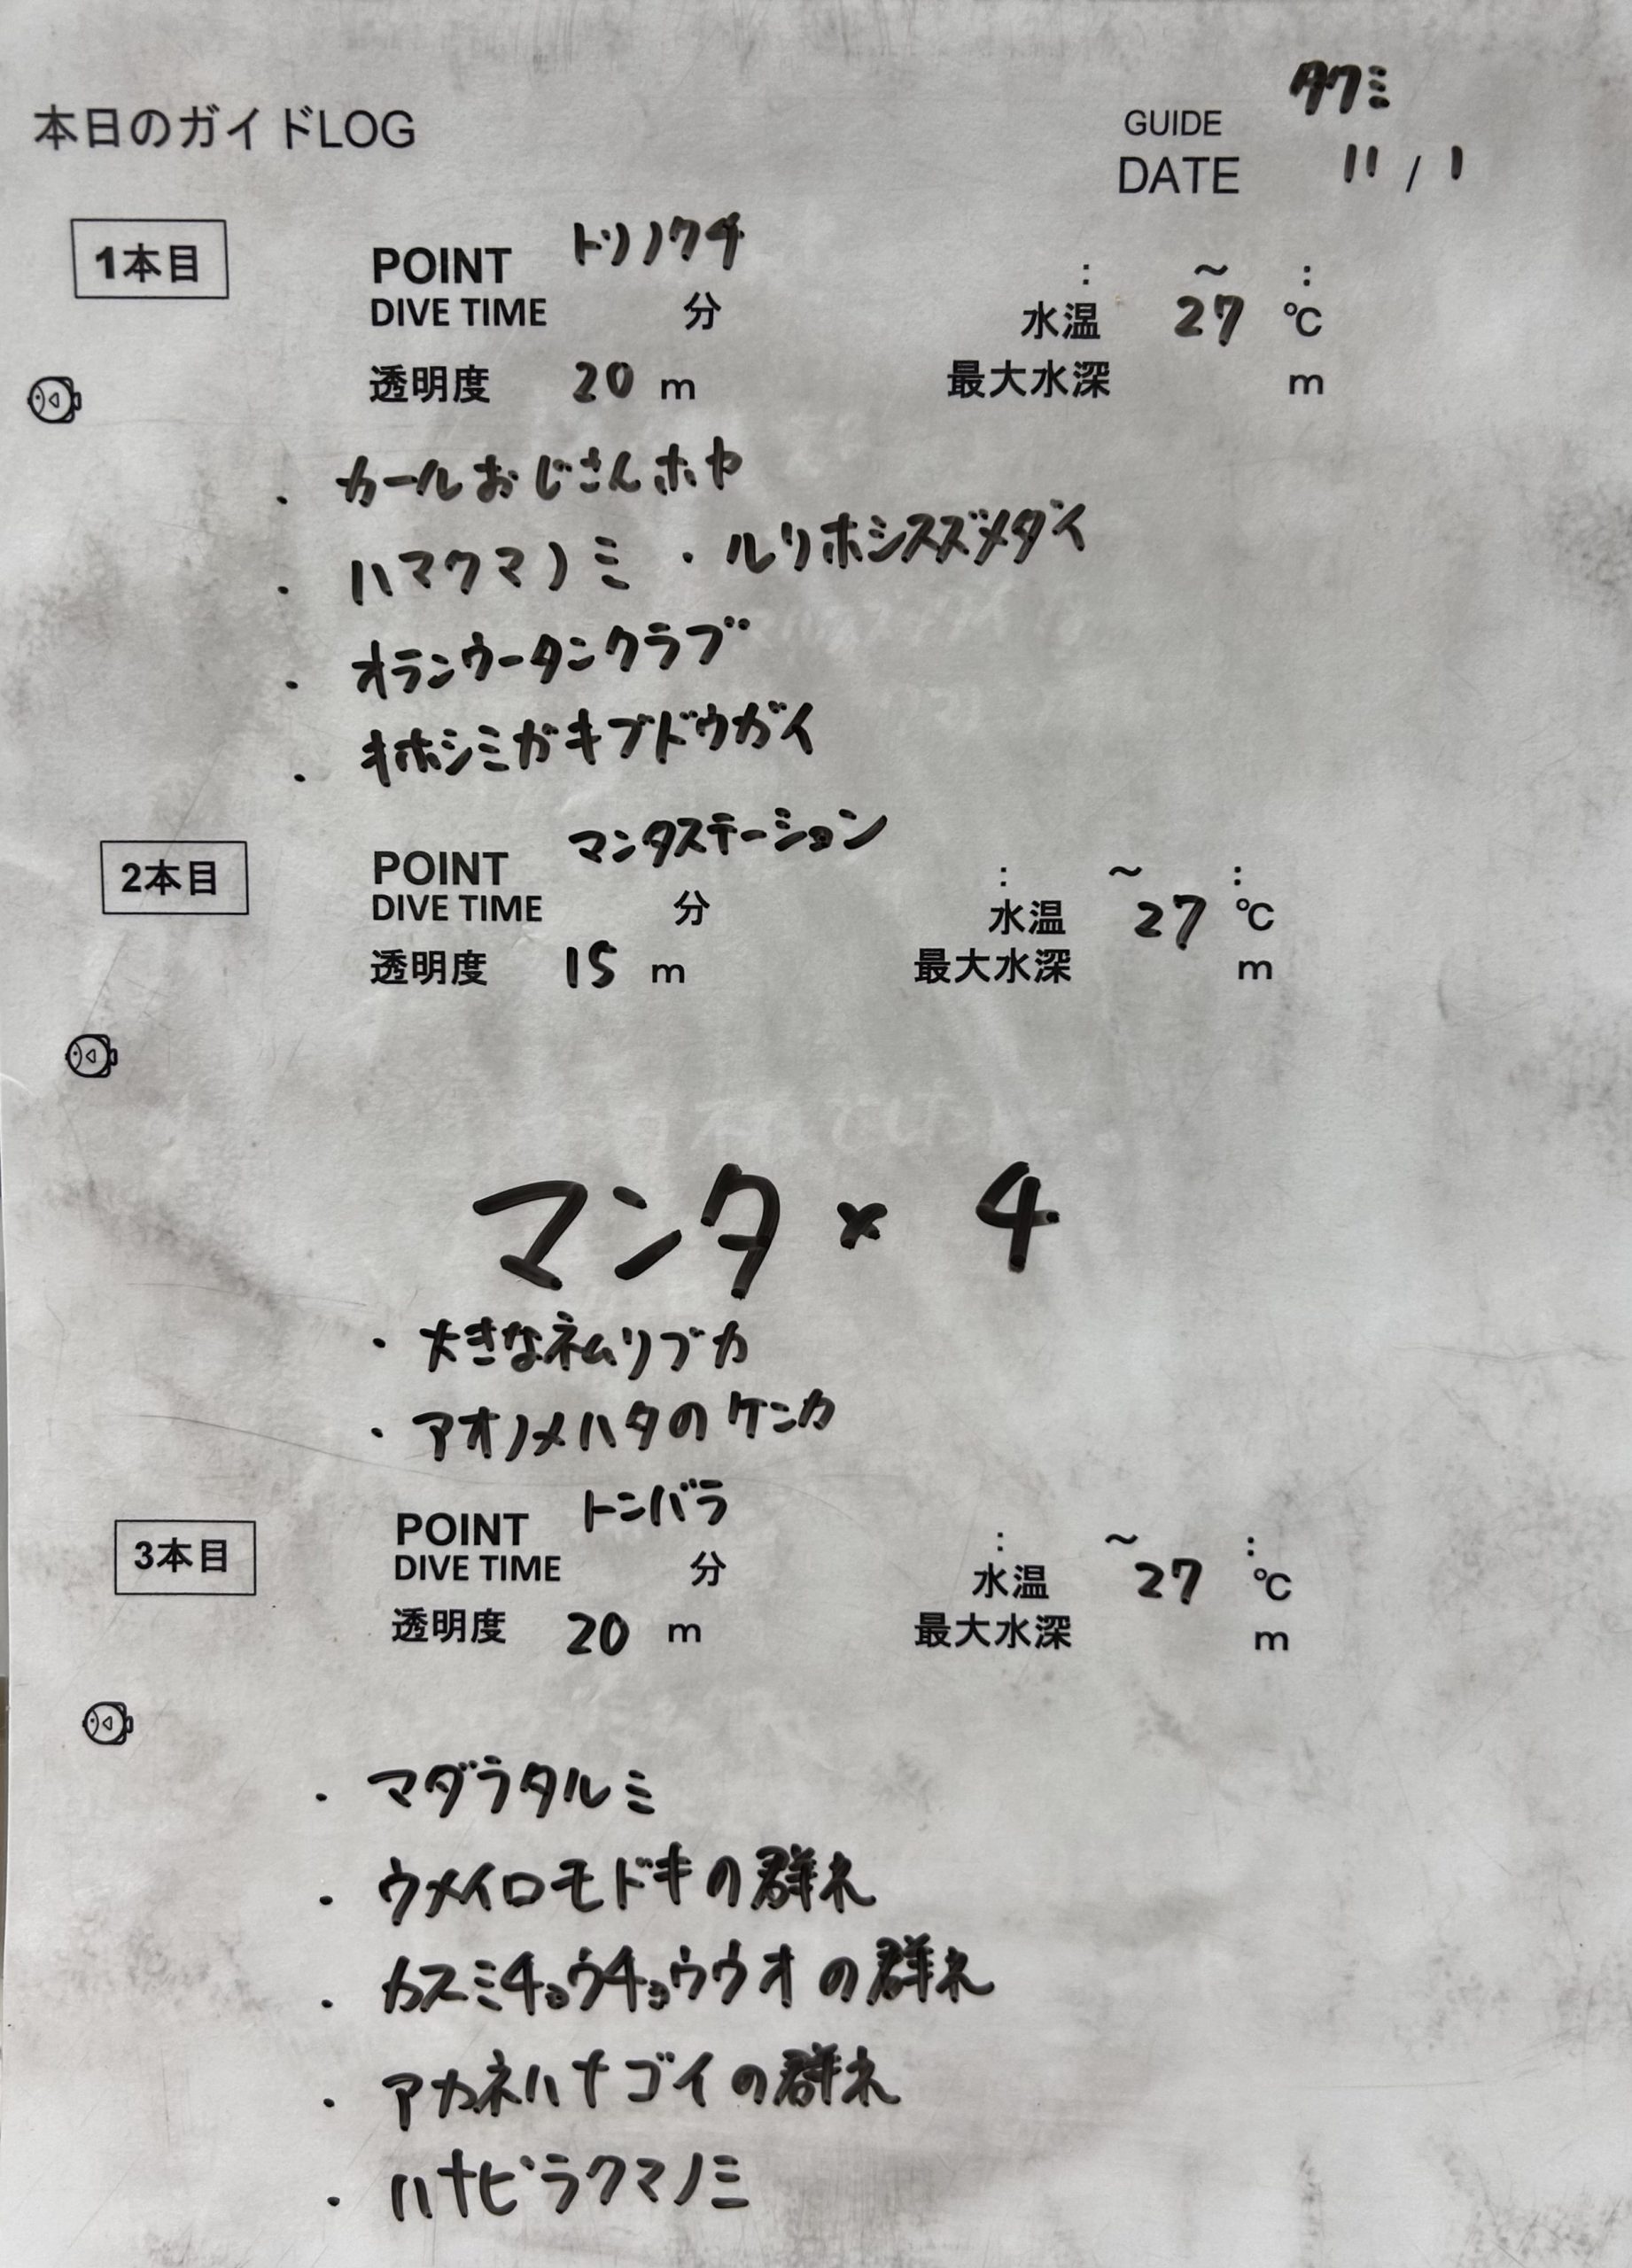 タクミ
本日のガイドLOG GUIDE
DATE 11 / 1
1本目 POINT トリノクチ : ～ :
DIVE TIME 分 水温 27 ℃
透明度 20 m 最大水深 m
・カールおじさんホヤ
・ハマクマノミ ・ルリホシスズメダイ
・オランウータンクラブ
・キホシミガキブドウガイ
2本目 POINT マンタステーション : ～ :
DIVE TIME 分 水温 27 ℃
透明度 15 m 最大水深 m
マンタ × 4
・大きなネムリブカ
・アオノメハタのケンカ
3本目 POINT トンバラ : ～ :
DIVE TIME 分 水温 27 ℃
透明度 20 m 最大水深 m
・マダラタルミ
・ウメイロモドキの群れ
・カスミチョウチョウウオの群れ
・アカネハナゴイの群れ
・ハナビラクマノミ